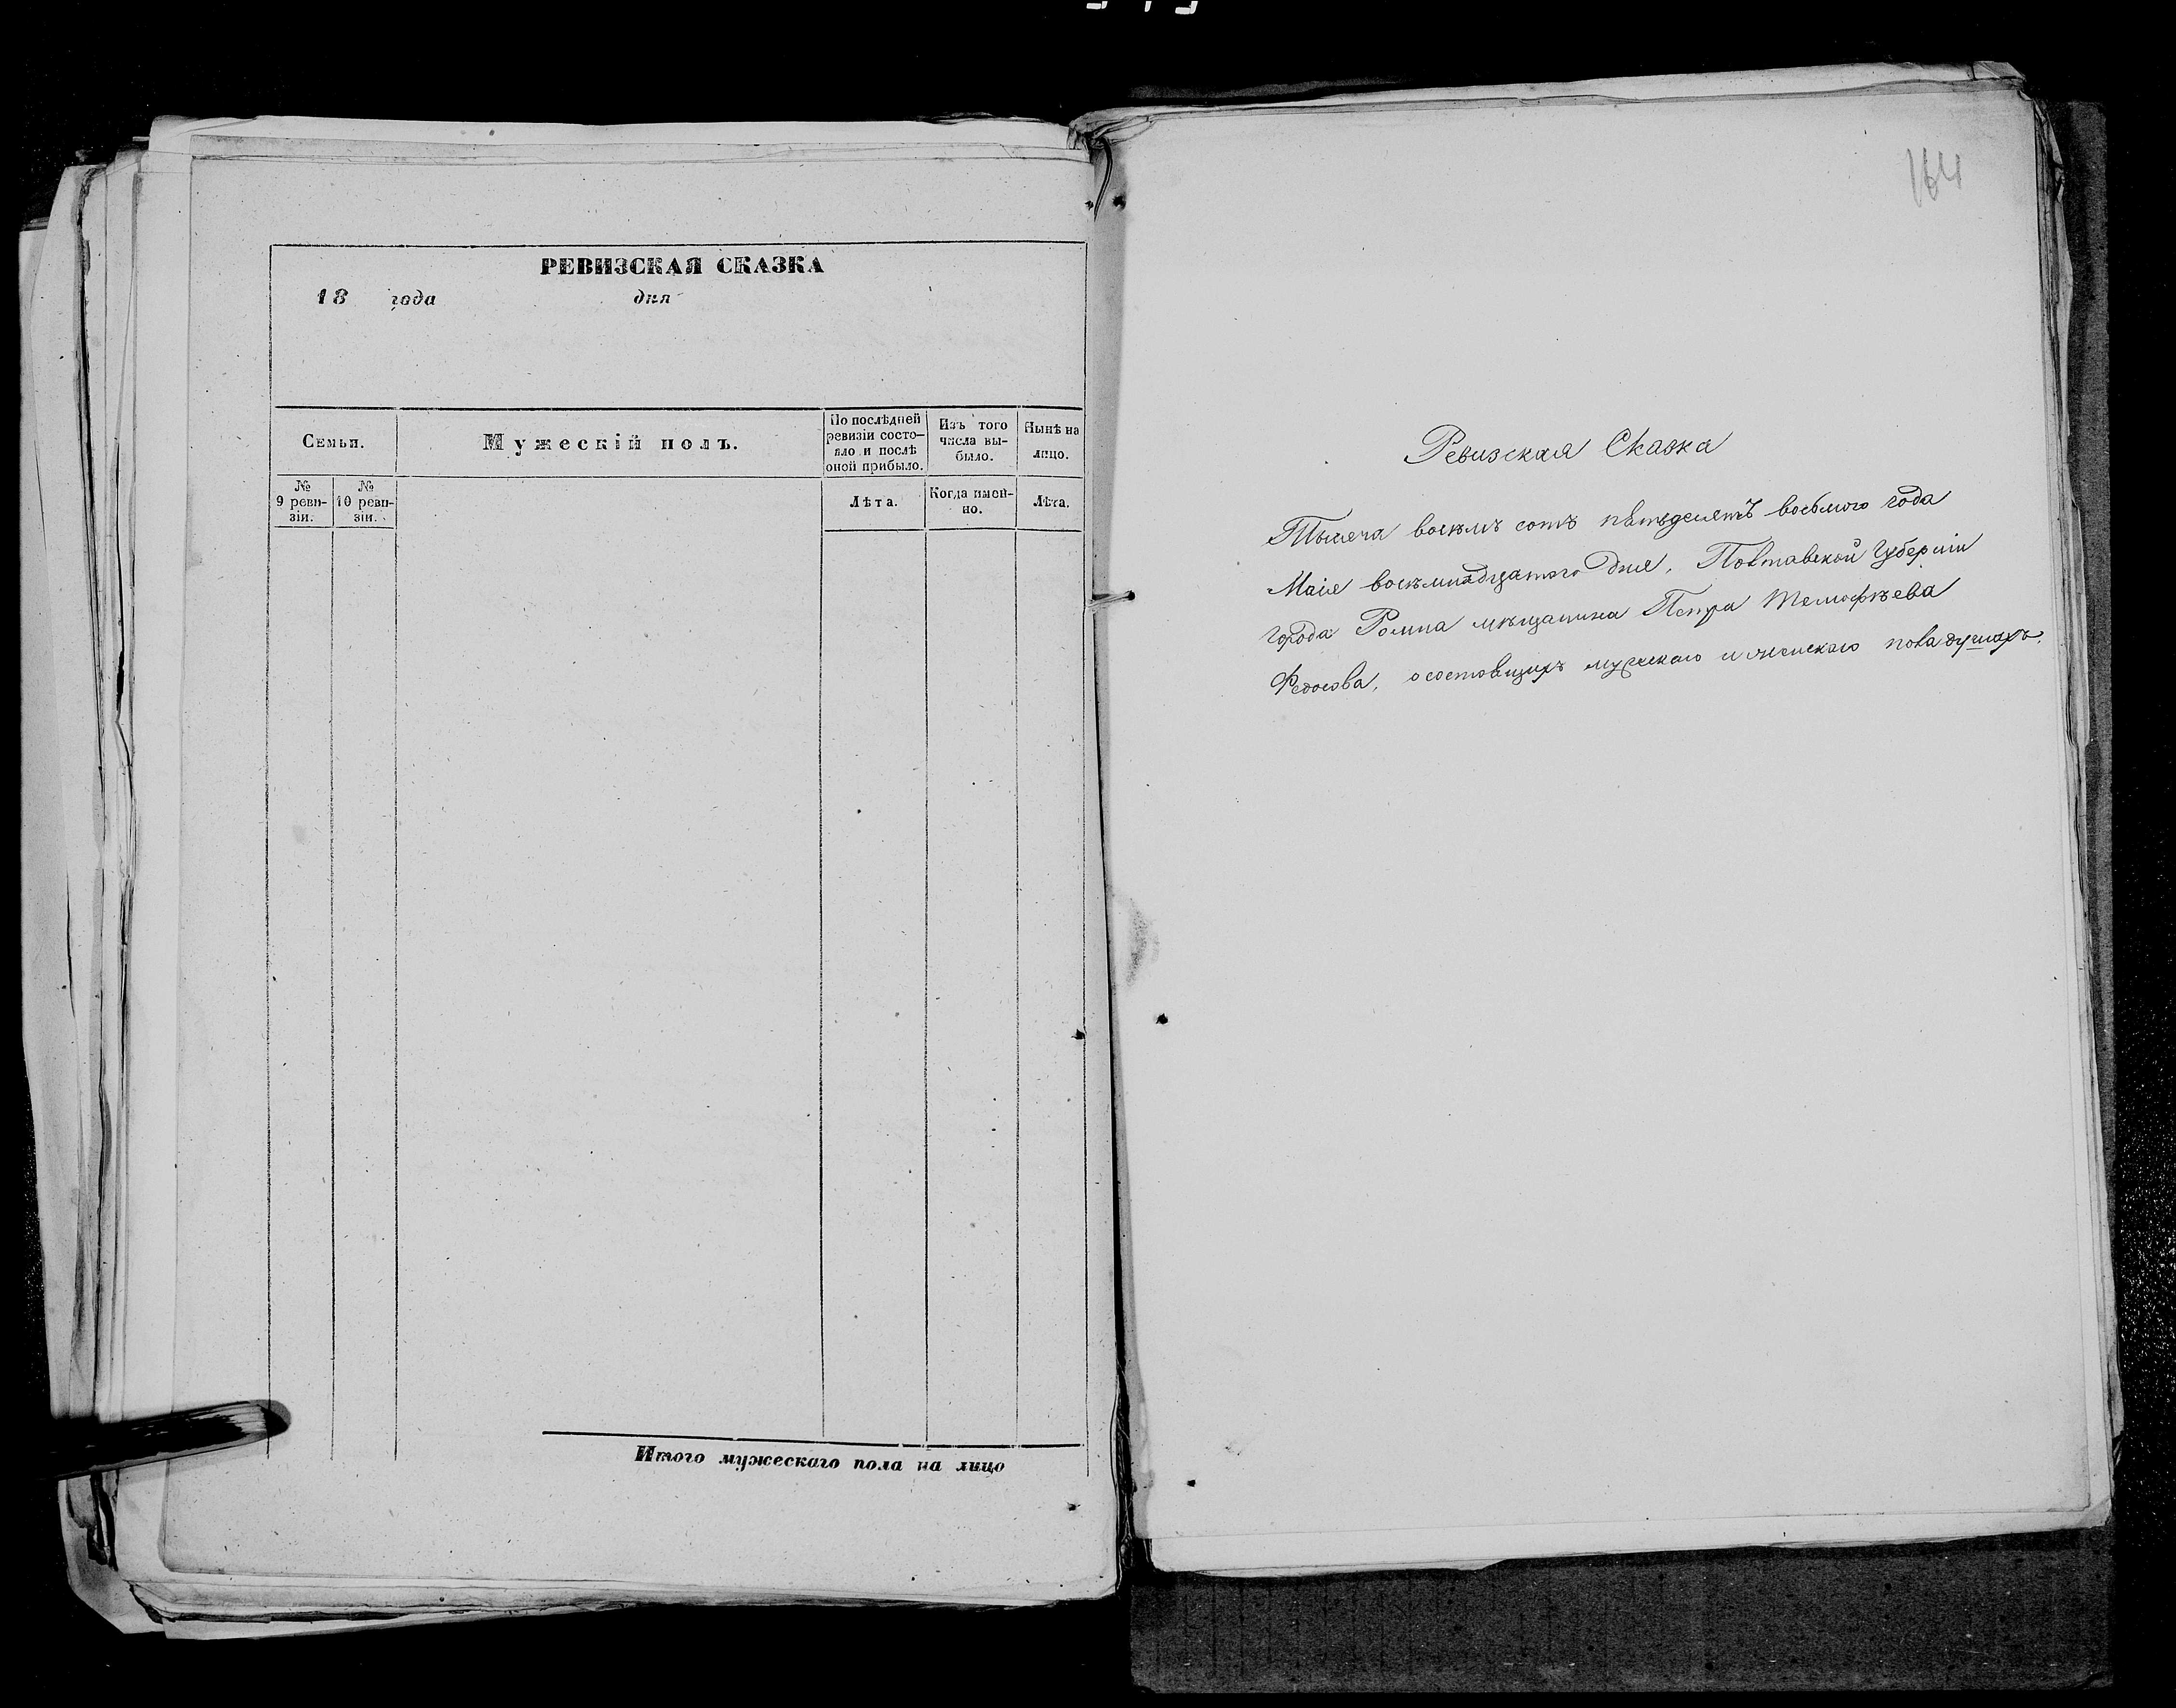 РЕВИЗСКАЯ СКАЗКА
18 года дня
Семьи.
Мужескій полъ.
По послѣдней
ревизіи состо-
яло и послѣ
оной прибыло.
Изъ того
числа вы-
было.
Нынѣ на
лицо.
№
9 реви-
зіи.
№
10 реви-
зіи.
Лѣта.
Когда имен-
но.
Лѣта.
Итого мужескаго пола на лицо
164
Ревизская Сказка
Тысяча восемь сотъ пятьдесятъ восьмого года
Маія восемнадцатого дня, Полтавской Губерніи
города Ромна мѣщанина Петра Тимофѣева
Федосова, о состоящихъ мужскаго и женскаго пола душахъ.